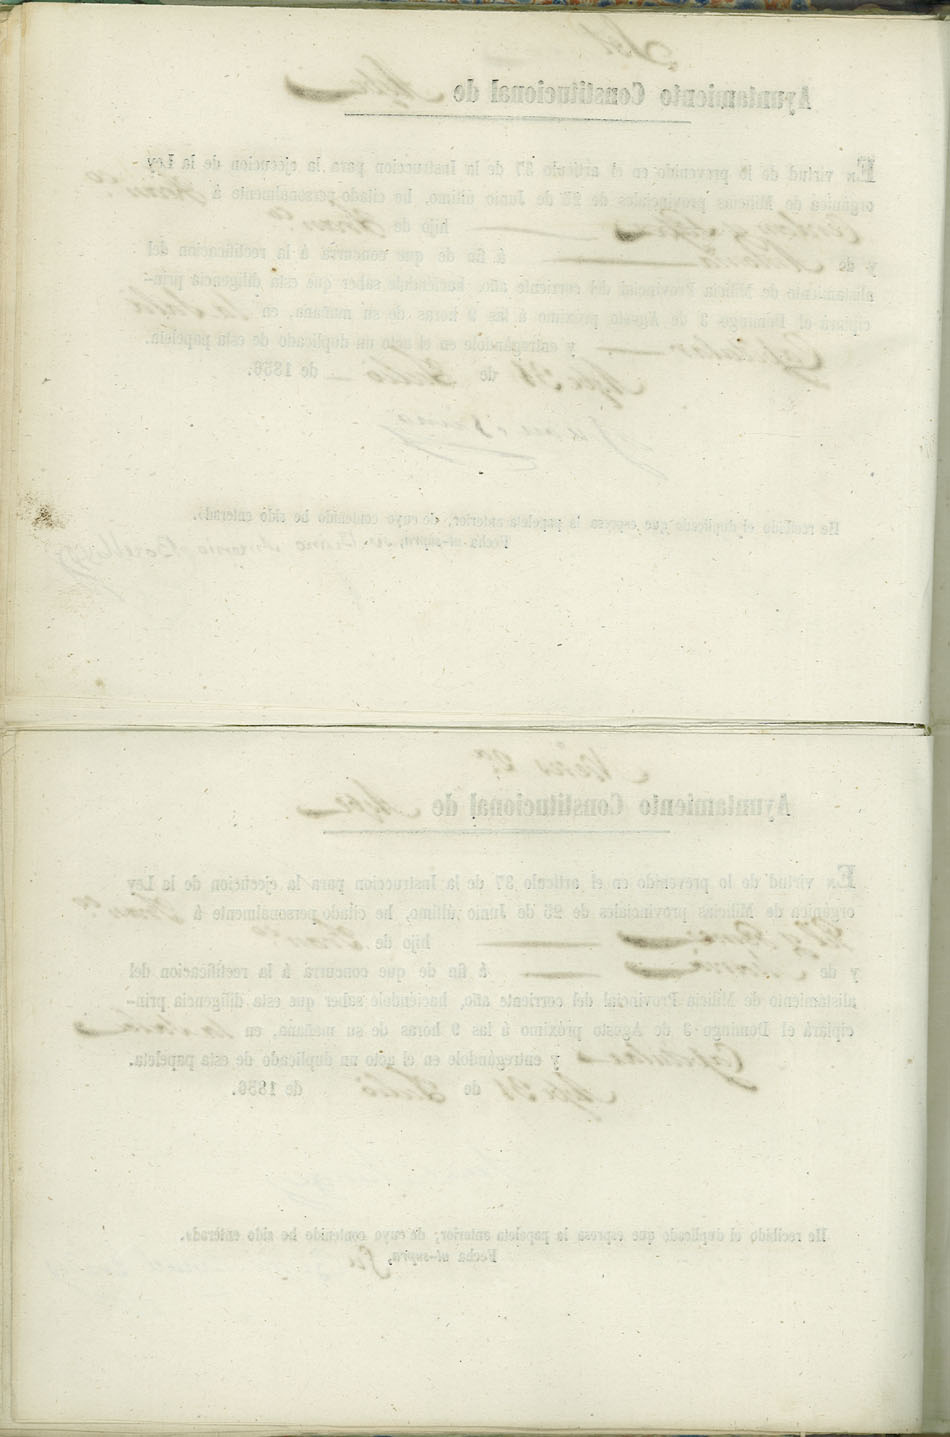 Ayuntamiento Constitucional de Aspe
En virtud de lo prevenido en el artículo 37 de la Instruccion para la ejecucion de la Ley
orgánica de Milicias provinciales de 25 de Junio último, he citado personalmente á Franco
hijo de Franco
y de Antonia á fin de que concurra á la rectificacion del
alistamiento de Milicia Provincial del corriente año, haciéndole saber que esta diligencia prin-
cipiará el Domingo 3 de Agosto próximo á las 9 horas de su mañana, en la Sala
Capitular y entregándole en el acto un duplicado de esta papeleta.
Aspe 31 de Julio de 1856.
He recibido el duplicado que espresa la papeleta anterior, de cuyo contenido he sido enterado.
Fecha ut-supra,
Ayuntamiento Constitucional de Aspe
En virtud de lo prevenido en el artículo 37 de la Instruccion para la ejecucion de la Ley
orgánica de Milicias provinciales de 25 de Junio último, he citado personalmente á Franco
hijo de Franco
y de María á fin de que concurra á la rectificacion del
alistamiento de Milicia Provincial del corriente año, haciéndole saber que esta diligencia prin-
cipiará el Domingo 3 de Agosto próximo á las 9 horas de su mañana, en la Sala
Capitular y entregándole en el acto un duplicado de esta papeleta.
Aspe 31 de Julio de 1856.
He recibido el duplicado que espresa la papeleta anterior, de cuyo contenido he sido enterado.
Fecha ut-supra,